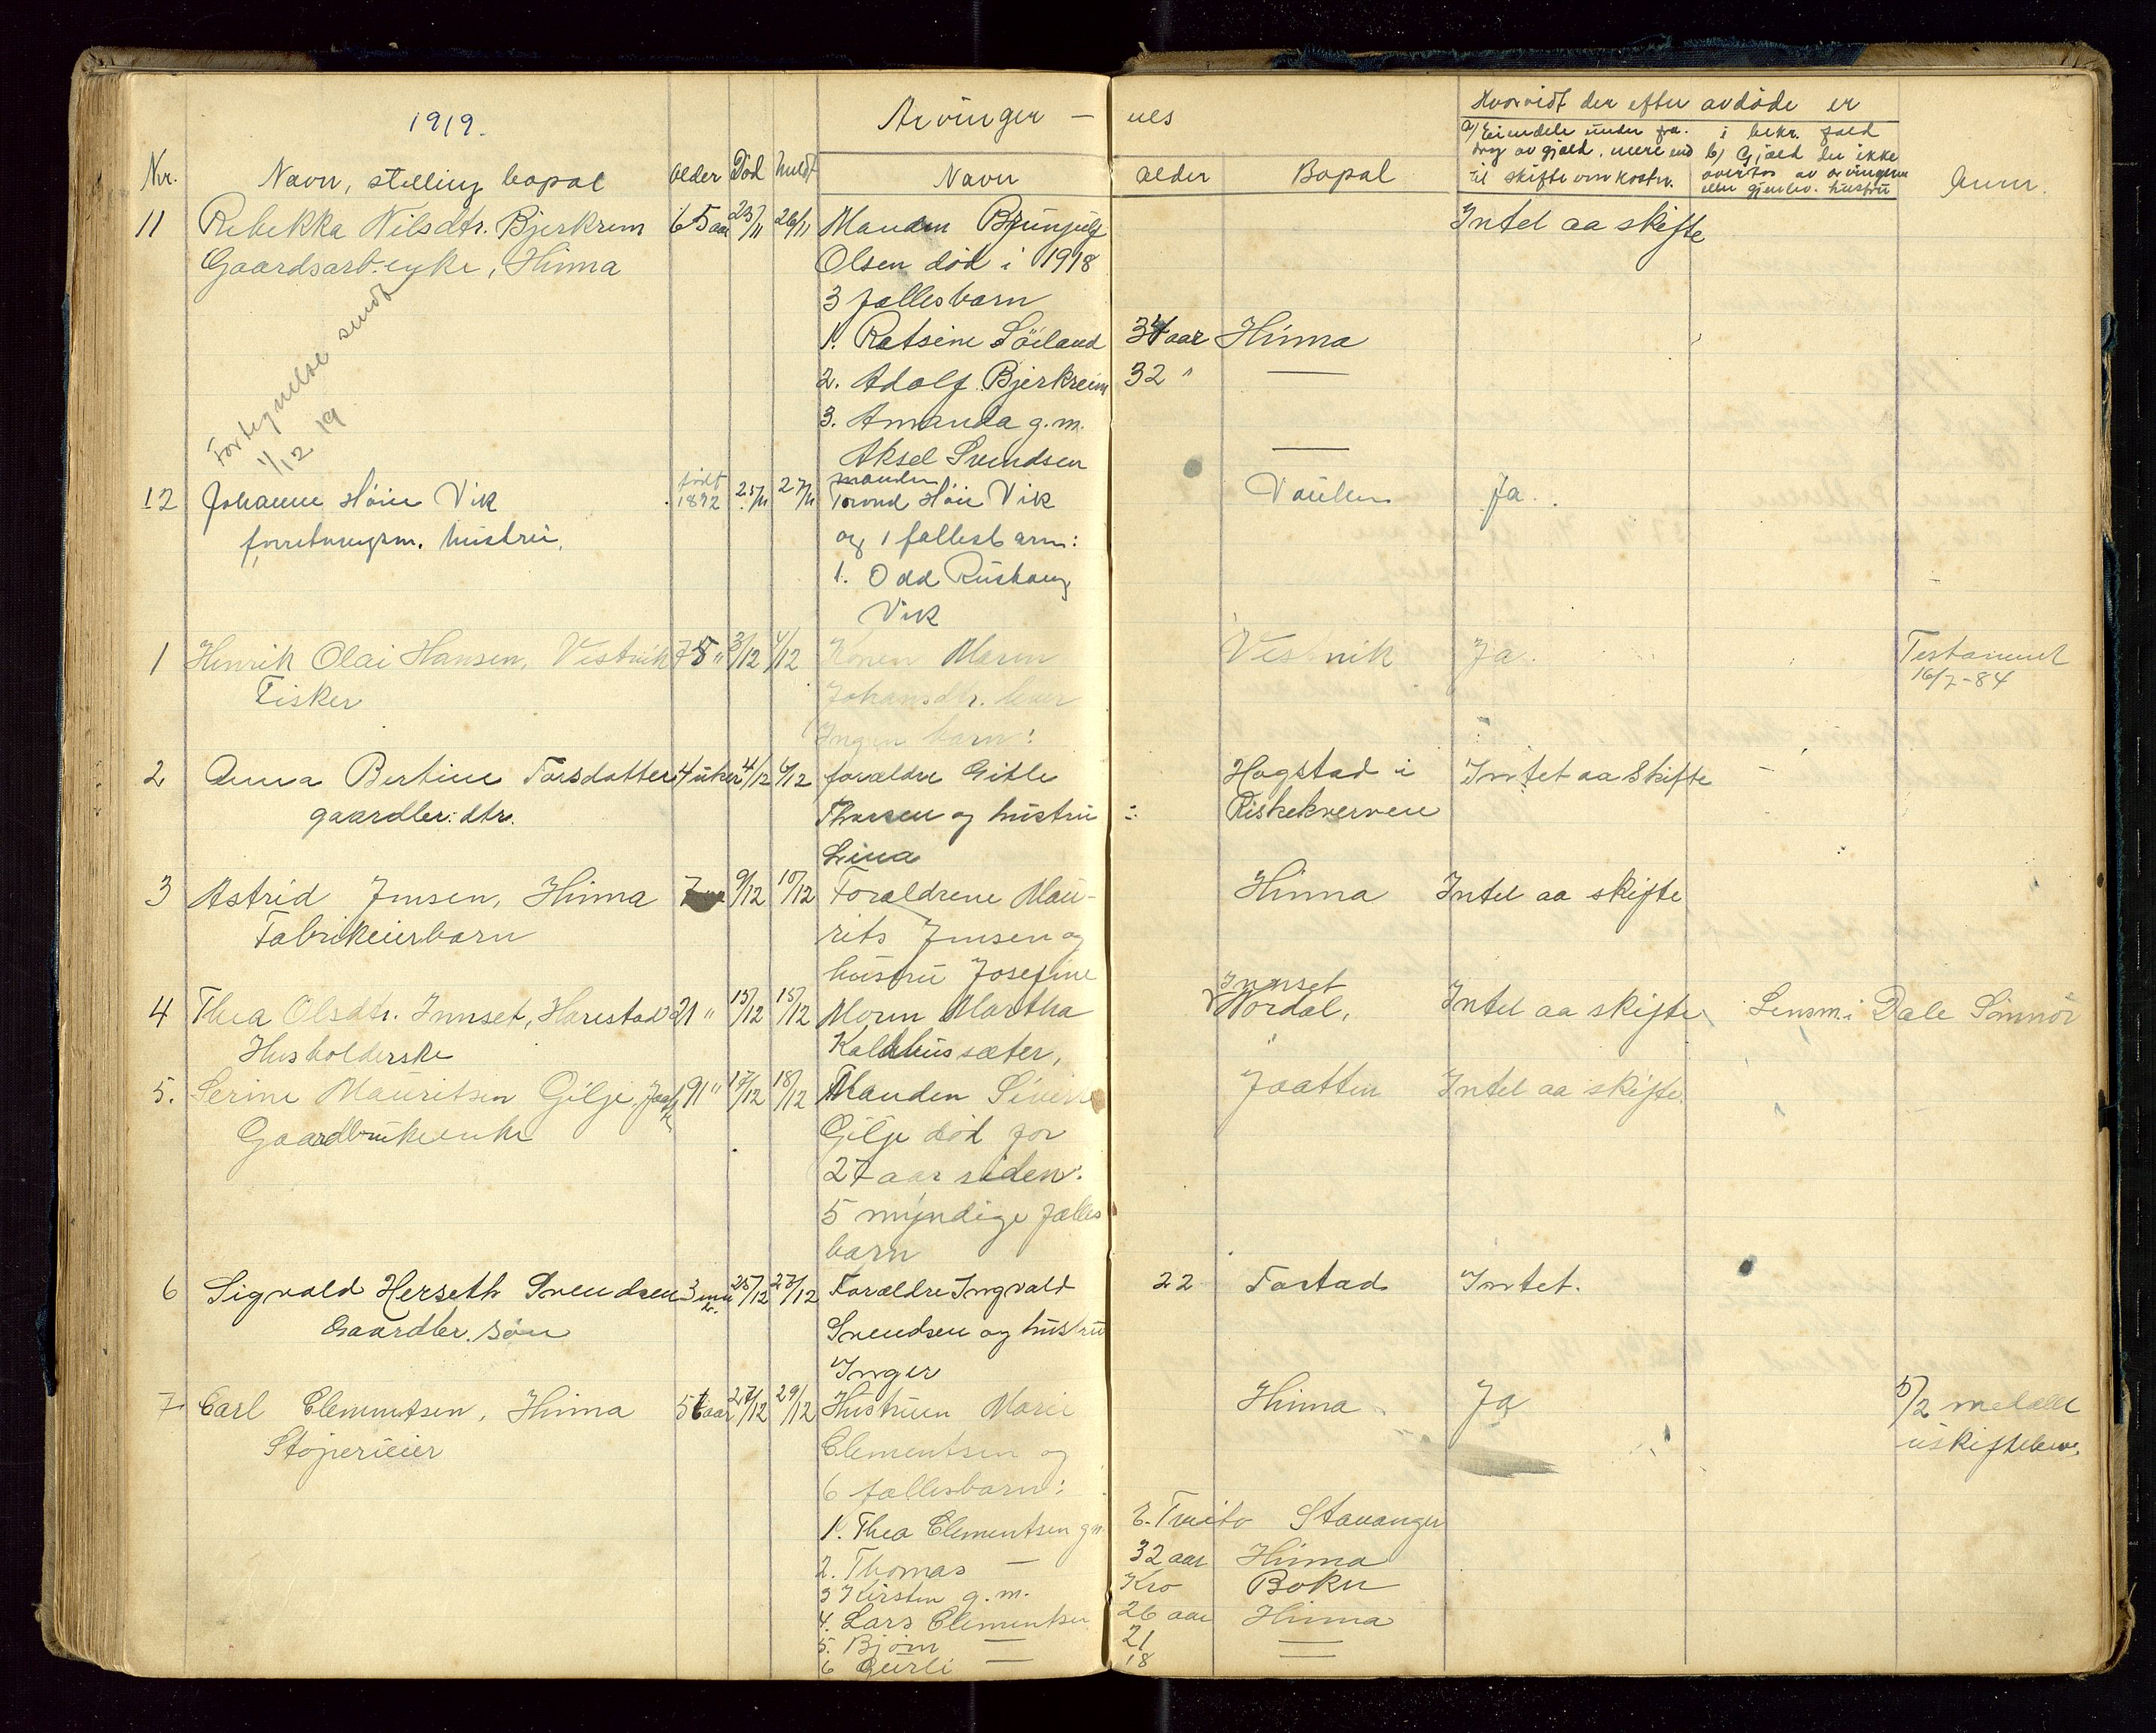 1919.
Arvinger - nes
Hvorvidt der efter avdøde er
Nr. Navn, stilling bopæl alder Død Meldt Navn alder Bopæl
a/ Eiendele under fra-
drag av gjæld, mere end
til skifteomkostn.
i bekr. fald
b) Gjæld der ikke
overtas av arvingerne
eller gjenlev. hustru
Anm.
11 Rebekka Nilsdtr. Bjerkrem 65 aar 23/11 26/11 Manden Brynjulf Intel aa skifte
Gaardsarb. enke, Hinna Olsen død i 1918
3 fællesbarn
Fortegnelse sendt
1/12 19
1. Ratsine Söiland 34 aar Hinna
2. Adolf Bjerkreim 32 " —
3. Amanda g.m.
Aksel Svendsen —
12 Johanne Höie Vik født 1892 25/11 27/11 manden
Trond Höie Vik Vaulen Ja.
forretningsm. hustru. og 1 fællesbarn:
1. Odd Rushaug
Vik
1 Henrik Olai Hansen, Vestnik 75 " 3/12 4/12 Konen Maren Vestnik Ja. Testament
Fisker Johansdtr. lever 16/7-84
Ingen barn:
2 Anna Bertine Torsdatter 4 uker 4/12 6/12 forældre Gitle Hogstad i Intet aa Skifte -
gaardbr. dtr. Thorsen og hustru Riskekverven
Lina
3 Astrid Jmsen, Hinna 9/12 10/12 Forældrene Mau- Hinna Intel aa skifte
Fabrikeierbarn rits Jmsen og
hustru Josefine
4 Thea Olsdtr. Innset, Harestad 21 " 15/12 15/12 Moren Martha Innset
Nordal, Intel aa skifte Lensm. i Dale Sönnör
Husholderske Kaldhussæter,
5. Serine Mauritsen Gilje, Jaatt. 91 " 17/12 18/12 Manden Siver Jaatten Intel aa skifte.
Gaardbrukerenke Gilje död for
27 aar siden:
5 myndige fælles
barn
6 Sigvald Herseth Svendsen 3 mndr. 25/12 27/12 Forældre Ingvald 22 Fostad Intet.
Gaardbr. søn Svendsen og hustru
Inger
7 Carl Clementsen, Hinna aar 27/12 29/12 Hustruen Marie Hinna Ja 5/2 meddelt
Støperieier Clementsen og uskiftebev.
6 fællesbarn:
1. Thea Clementsen gm. E. Tveito Stavanger
2. Thomas — 32 aar Hinna
3 Kirsten g.m. Kro Bokn
4. Lars Clementsen 26 aar Hinna
5. Bjørn — 21 —
6 Gurli — 18 —